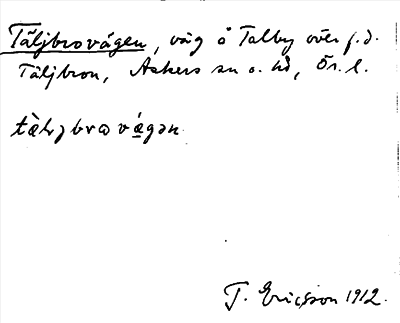 Täljbrovägen, väg å Talby över f.d.
Täljbron, Askers sn o. hd, Ör. l.
tä̀lɟbrωvä́gən
T. Ericsson 1912.